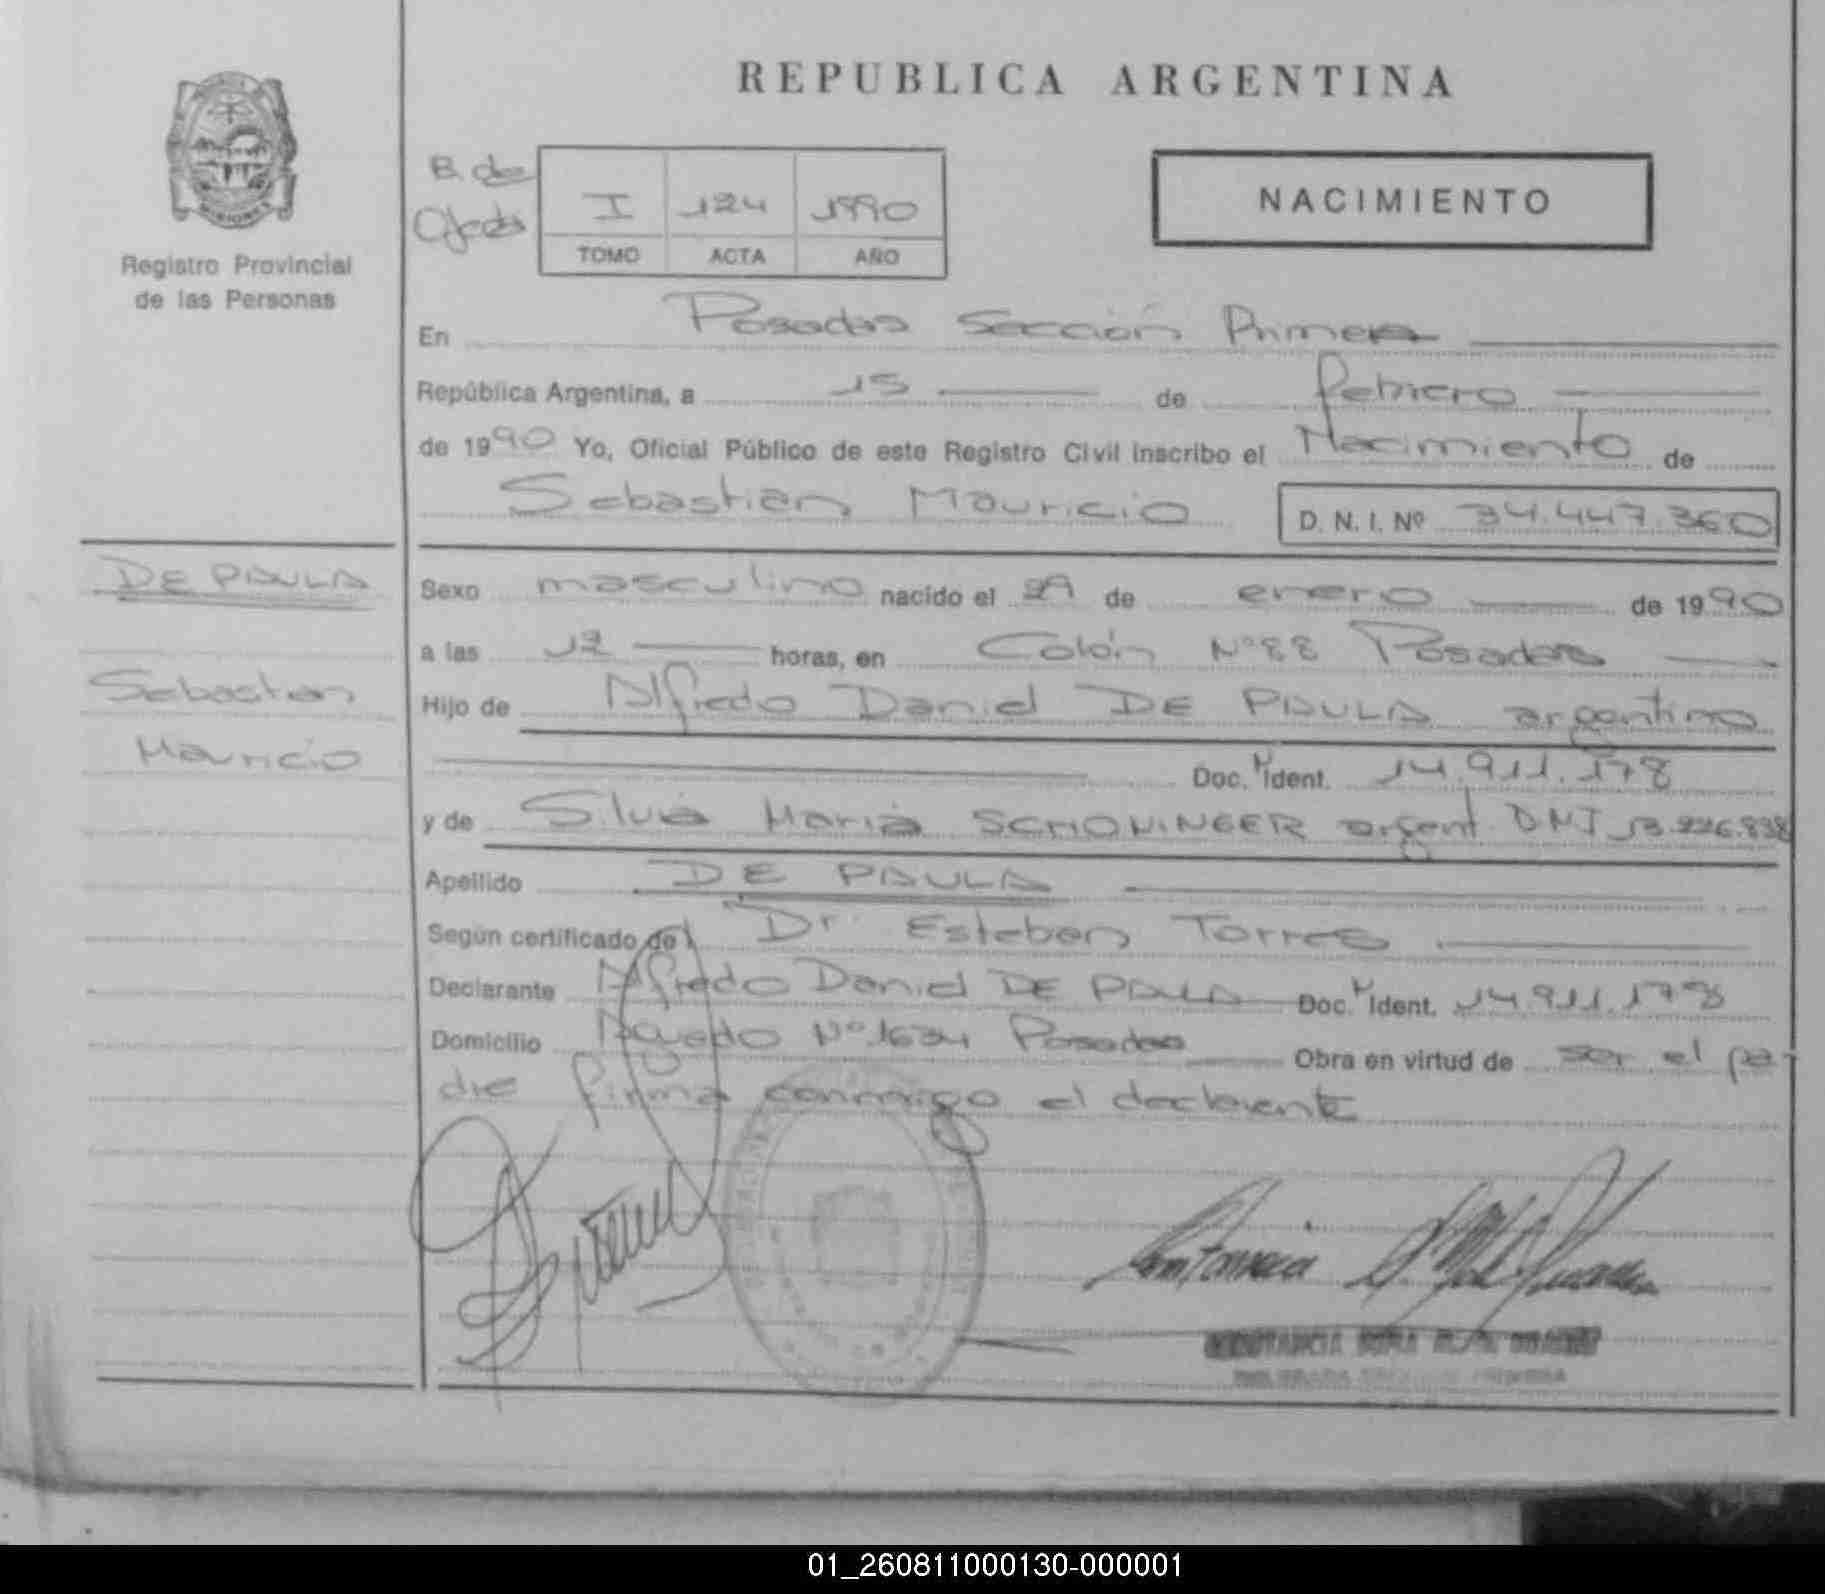 REPUBLICA ARGENTINA
MISIONES
Registro Provincial
de las Personas
B. de
I 124 1990
TOMO ACTA AÑO
NACIMIENTO
En Posadas Sección Primera
República Argentina, a 15 de febrero
de 1990 Yo, Oficial Público de este Registro Civil inscribo el Nacimiento de
Sebastian Mauricio D. N. I. Nº 34.447.360
DE PAULA
Sebastian
Mauricio
Sexo masculino nacido el 29 de enero de 1990
a las horas, en Colón Nº 88 Posadas
Hijo de Alfredo Daniel DE PAULA argentino
Doc. M Ident. 14.911.178
y de Silvia Maria SCHONINGER argent. DNI 13.226.838
Apellido DE PAULA
Según certificado de Dr. Esteban Torres
Declarante Alfredo Daniel DE PAULA Doc. M Ident. 14.911.178
Domicilio Nº 1634 Posadas Obra en virtud de ser el pa-
dre firma conmigo el declarante
01_260811000130-000001